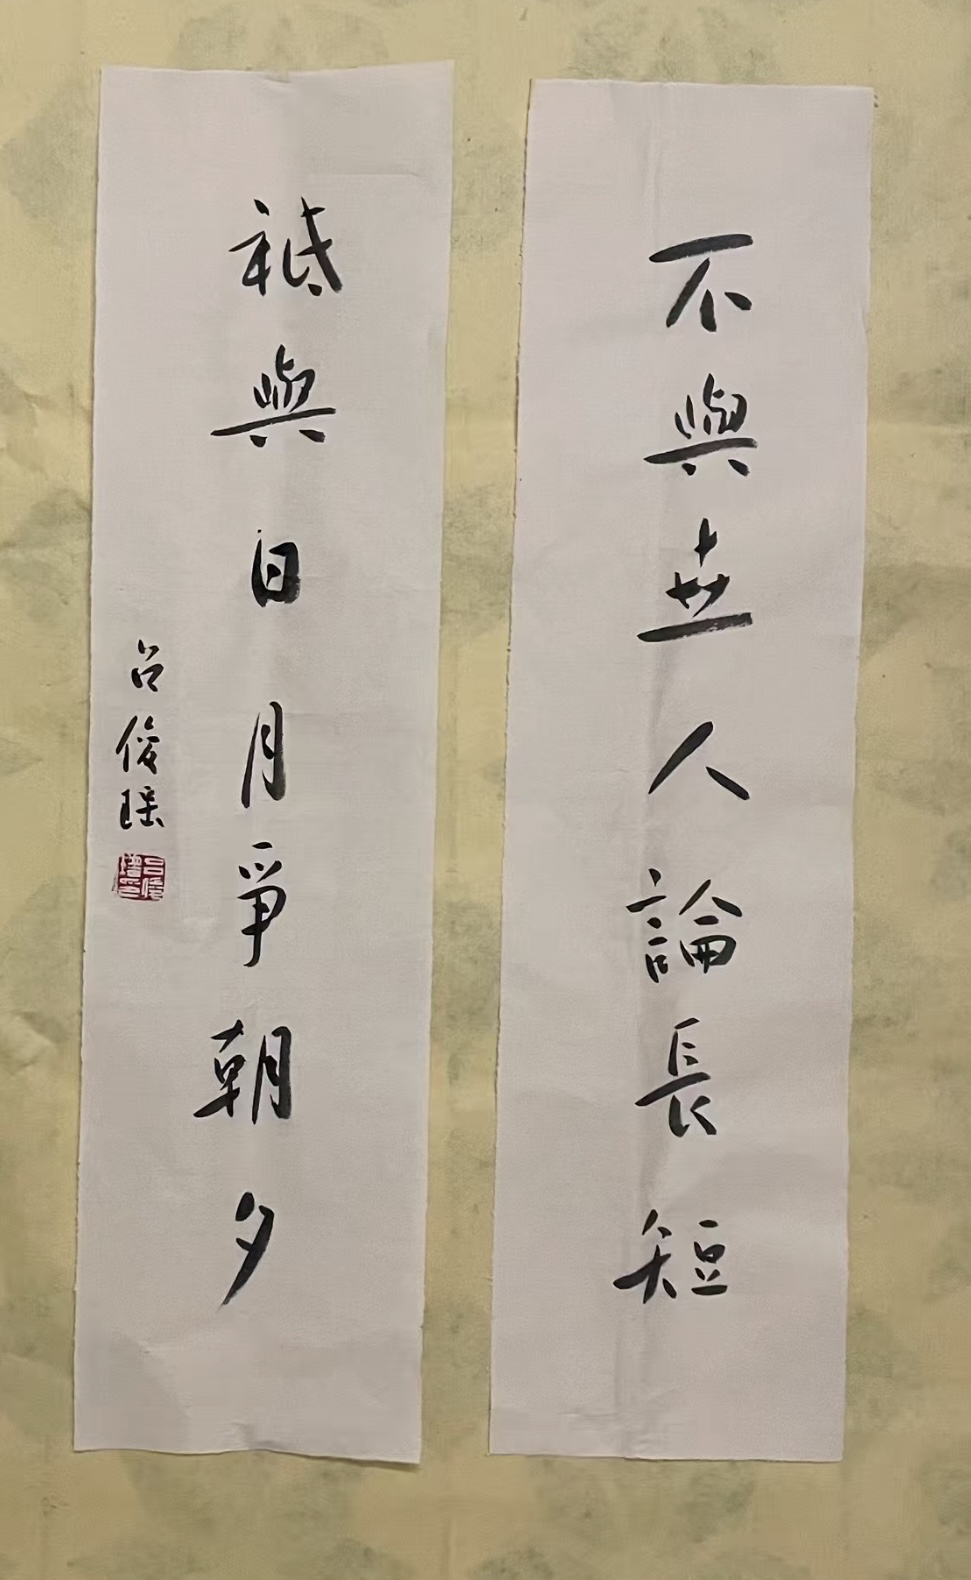 不與世人論長短
祇與日月爭朝夕
呂俊瑤